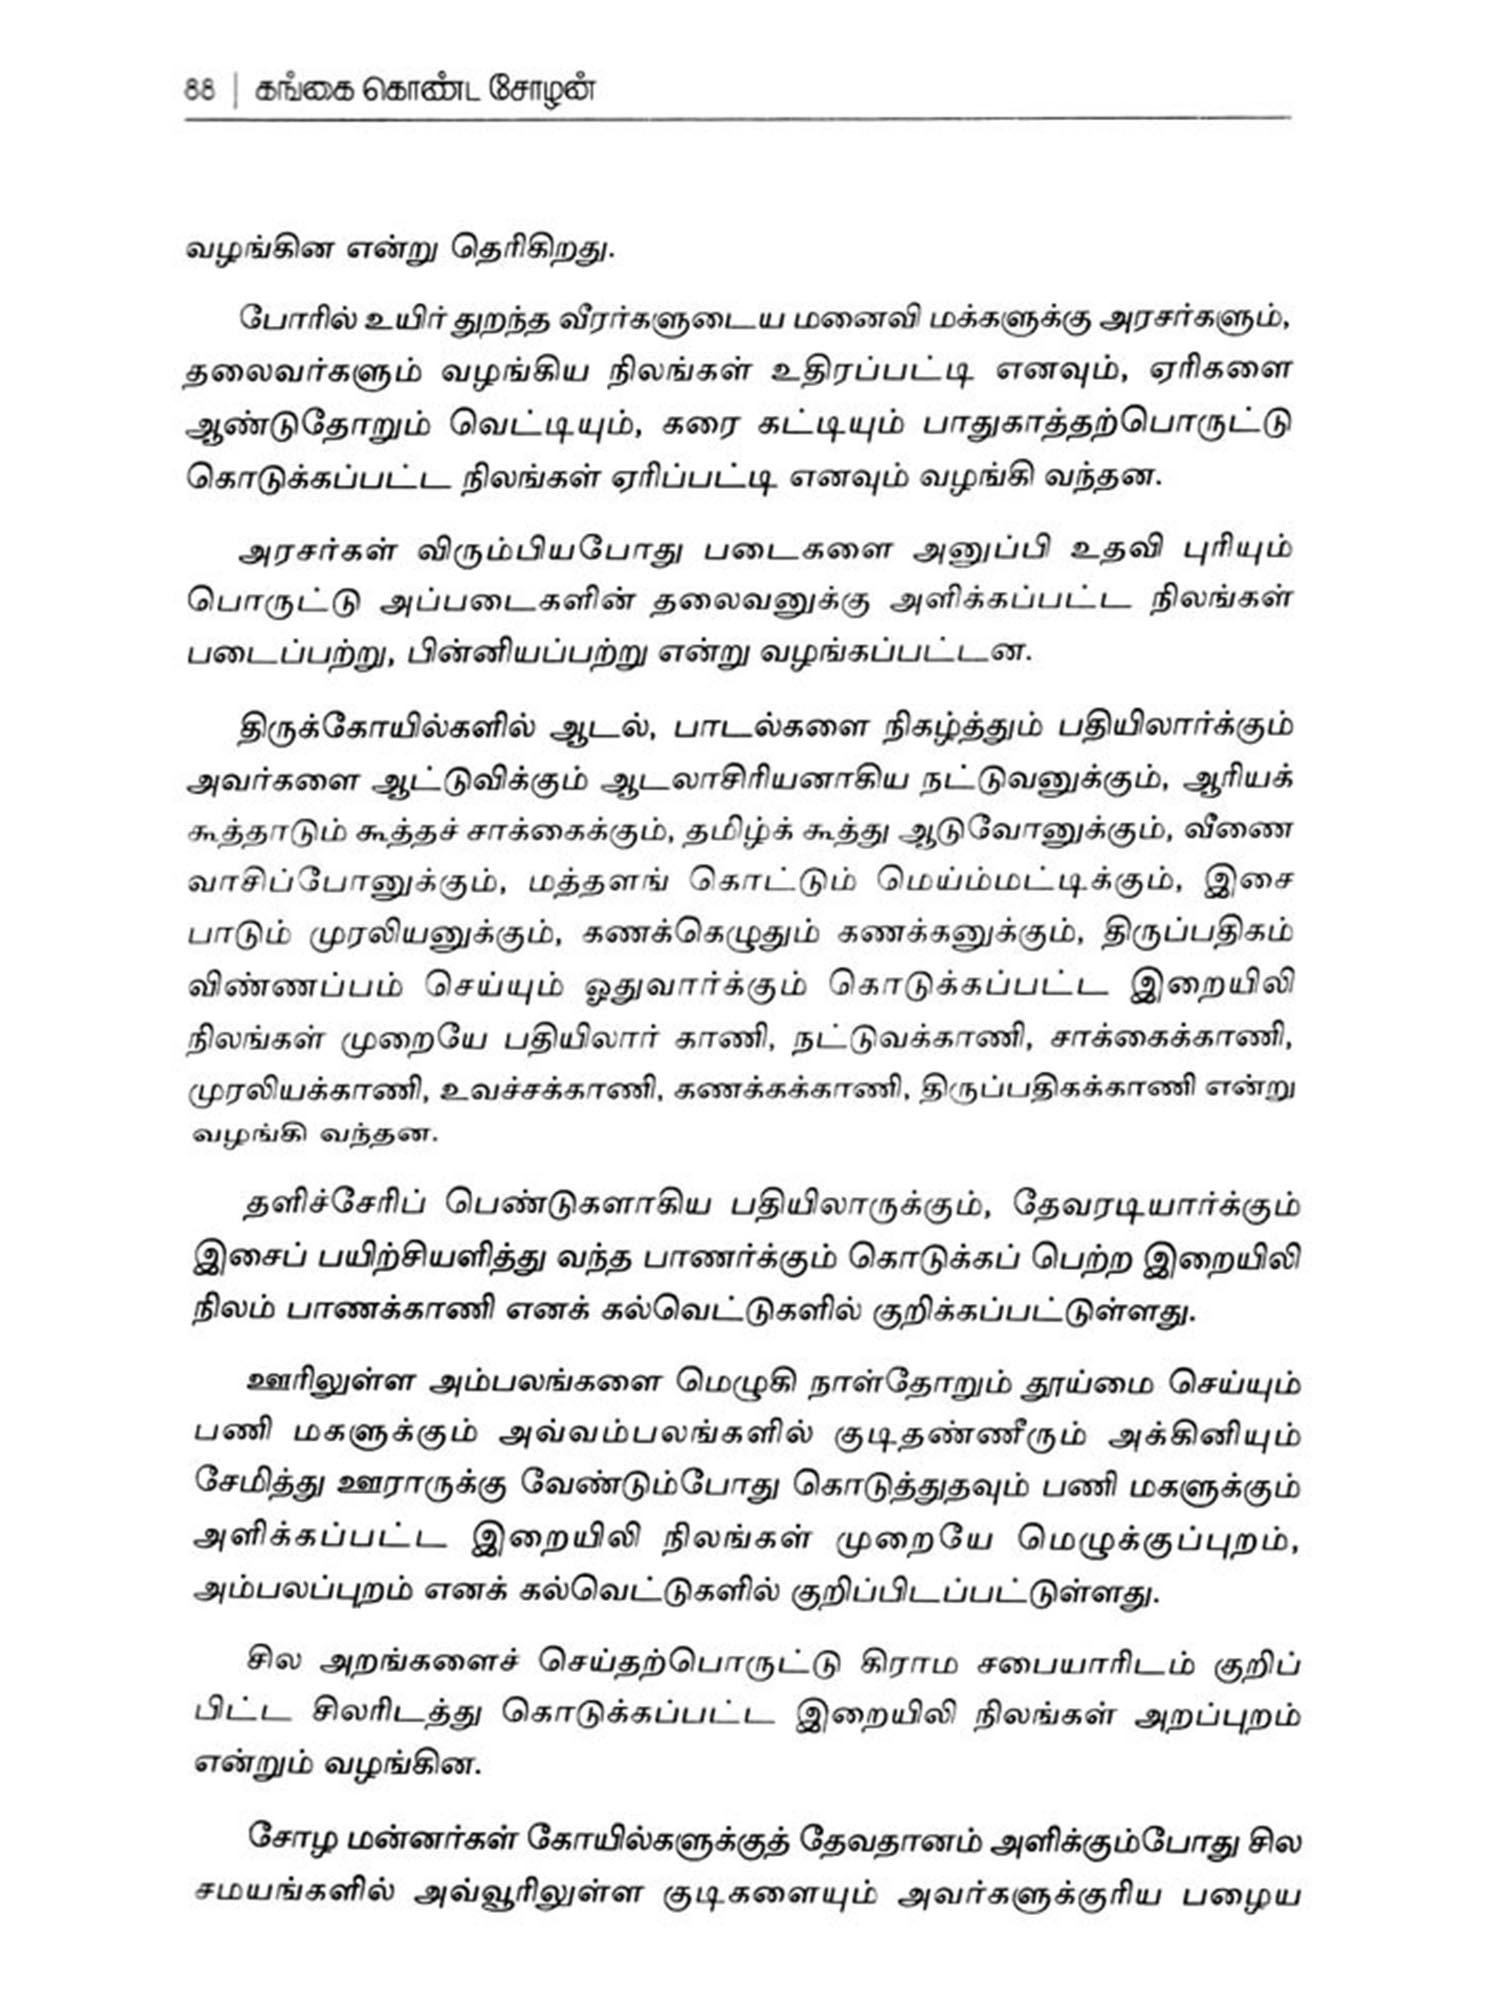 88 | கங்கை கொண்ட சோழன்
வழங்கின என்று தெரிகிறது.
போரில் உயிர் துறந்த வீரர்களுடைய மனைவி மக்களுக்கு அரசர்களும்,
தலைவர்களும் வழங்கிய நிலங்கள் உதிரப்பட்டி எனவும், ஏரிகளை
ஆண்டுதோறும் வெட்டியும், கரை கட்டியும் பாதுகாத்தற்பொருட்டு
கொடுக்கப்பட்ட நிலங்கள் ஏரிப்பட்டி எனவும் வழங்கி வந்தன.
அரசர்கள் விரும்பியபோது படைகளை அனுப்பி உதவி புரியும்
பொருட்டு அப்படைகளின் தலைவனுக்கு அளிக்கப்பட்ட நிலங்கள்
படைப்பற்று, பின்னியப்பற்று என்று வழங்கப்பட்டன.
திருக்கோயில்களில் ஆடல், பாடல்களை நிகழ்த்தும் பதியிலார்க்கும்
அவர்களை ஆட்டுவிக்கும் ஆடலாசிரியனாகிய நட்டுவனுக்கும், ஆரியக்
கூத்தாடும் கூத்தச் சாக்கைக்கும், தமிழ்க் கூத்து ஆடுவோனுக்கும், வீணை
வாசிப்போனுக்கும், மத்தளங் கொட்டும் மெய்ம்மட்டிக்கும், இசை
பாடும் முரலியனுக்கும், கணக்கெழுதும் கணக்கனுக்கும், திருப்பதிகம்
விண்ணப்பம் செய்யும் ஓதுவார்க்கும் கொடுக்கப்பட்ட இறையிலி
நிலங்கள் முறையே பதியிலார் காணி, நட்டுவக்காணி, சாக்கைக்காணி,
முரலியக்காணி, உவச்சக்காணி, கணக்கக்காணி, திருப்பதிகக்காணி என்று
வழங்கி வந்தன.
தளிச்சேரிப் பெண்டுகளாகிய பதியிலாருக்கும், தேவரடியார்க்கும்
இசைப் பயிற்சியளித்து வந்த பாணர்க்கும் கொடுக்கப் பெற்ற இறையிலி
நிலம் பாணக்காணி எனக் கல்வெட்டுகளில் குறிக்கப்பட்டுள்ளது.
ஊரிலுள்ள அம்பலங்களை மெழுகி நாள்தோறும் தூய்மை செய்யும்
பணி மகளுக்கும் அவ்வம்பலங்களில் குடிதண்ணீரும் அக்கினியும்
சேமித்து ஊராருக்கு வேண்டும்போது கொடுத்துதவும் பணி மகளுக்கும்
அளிக்கப்பட்ட இறையிலி நிலங்கள் முறையே மெழுக்குப்புறம்,
அம்பலப்புறம் எனக் கல்வெட்டுகளில் குறிப்பிடப்பட்டுள்ளது.
சில அறங்களைச் செய்தற்பொருட்டு கிராம சபையாரிடம் குறிப்
பிட்ட சிலரிடத்து கொடுக்கப்பட்ட இறையிலி நிலங்கள் அறப்புறம்
என்றும் வழங்கின.
சோழ மன்னர்கள் கோயில்களுக்குத் தேவதானம் அளிக்கும்போது சில
சமயங்களில் அவ்வூரிலுள்ள குடிகளையும் அவர்களுக்குரிய பழைய